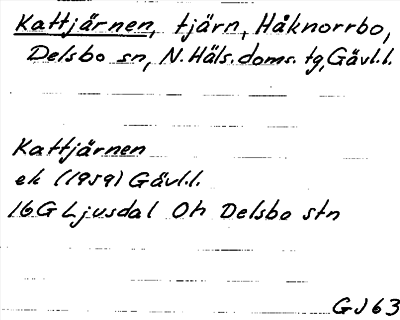 Kattjärnen, tjärn, Håknorrbo,
Delsbo sn, N. Häls. doms. tg, Gävl.l.
Kattjärnen
ek (1959) Gävl.l.
16G Ljusdal Oh Delsbo stn
GJ 63